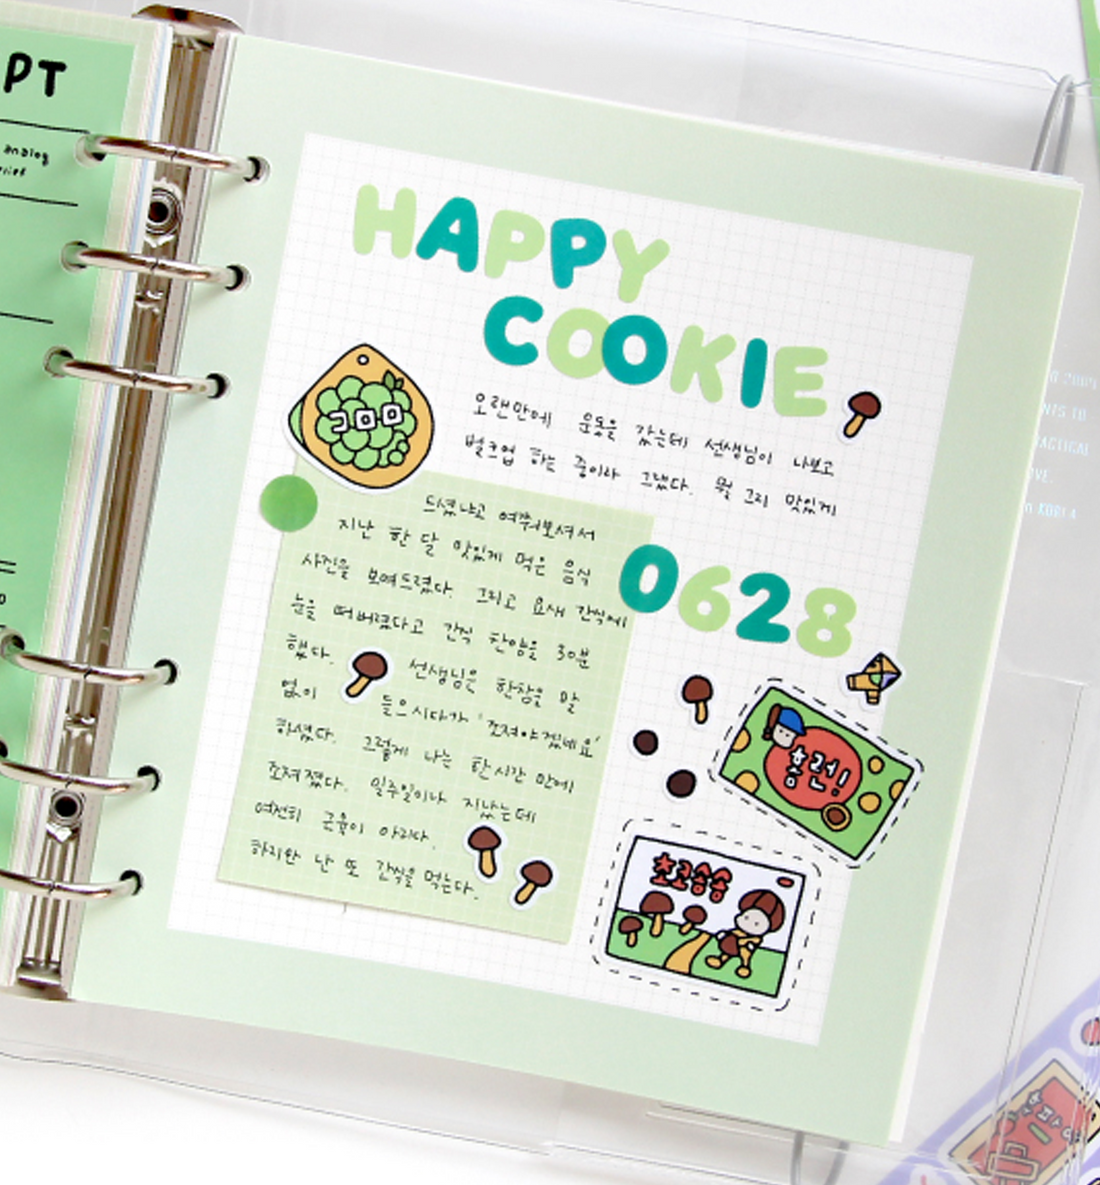 PT
analog
HAPPY
COOKIE
오랜만에 운동을 갔는데 선생님이 나보고
벌크업 하는 중이라 그랬다. 뭘 그리 맛있게
드셨냐고 여쭤보셔서
지난 한 달 맛있게 먹은 음식
사진을 보여드렸다. 그리고 요새 간식에
눈을 떠버렸다고 간식 찬양을 30분
했다. 선생님은 한참을 말
없이 들으시다가 '조져야겠네요'
하셨다. 그렇게 나는 한시간 만에
조져졌다. 일주일이나 지났는데
여전히 근육이 아리다.
하지만 난 또 간식을 먹는다.
코로로
0628
흠런!
초코송송